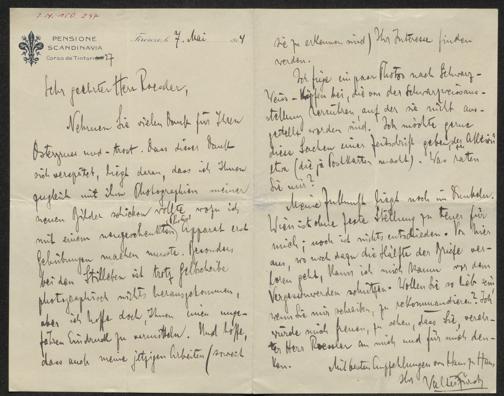 I.N. 160.247
PENSIONE
SCANDINAVIA
Corso de' Tintori
Firenze, 7. Mai 24
Sehr geehrter Herr Roessler,
Nehmen Sie vielen Dank für Ihren
Ostergruss und -trost. Dass dieser Dank
sich verspätet, liegt daran, dass ich Ihnen
zugleich mit ihm Photographien meiner
neuen Bilder schicken wollte, wozu ich
mit einem neugeschenkten Photo Apparat erst
Gehübungen machen musste. Besonders
bei den Stilleben ist trotz Gelbscheibe
photographisch nichts herausgekommen,
aber ich hoffe doch Ihnen einen unge-
fähren Eindruck zu vermitteln. Und hoffe,
dass auch meine jetzigen Arbeiten (soweit
sie zu erkennen sind) Ihr Interesse finden
werden.
Ich füge ein paar Photos nach Schwarz-
Weiss- bei, die von der Schwarzweissaus-
stellung herrühren auf der sie nicht aus-
gestellt worden sind. Ich möchte gerne
diese Sachen einer Zeitschrift geben
etwa (die ja Postkarten macht). Was raten
Sie mir?
Meine Zukunft liegt noch im Dunkeln.
Wien ist ohne feste Stellung zu teuer für
mich; noch ist nichts entschieden. Von hier
aus, wo noch dazu die Hälfte der Briefe ver-
loren geht, kann ich mich kaum vor dem
Vergessenwerden schützen. Wollen Sie so lieb sein
wenn Sie mir schreiben, zu rekommandieren? Ich
würde mich freuen, zu sehen, dass Sie, verehr-
ter Herr Roessler an mich und für mich den-
ken.
Mit besten Empfehlungen von Haus zu Haus,
Ihr